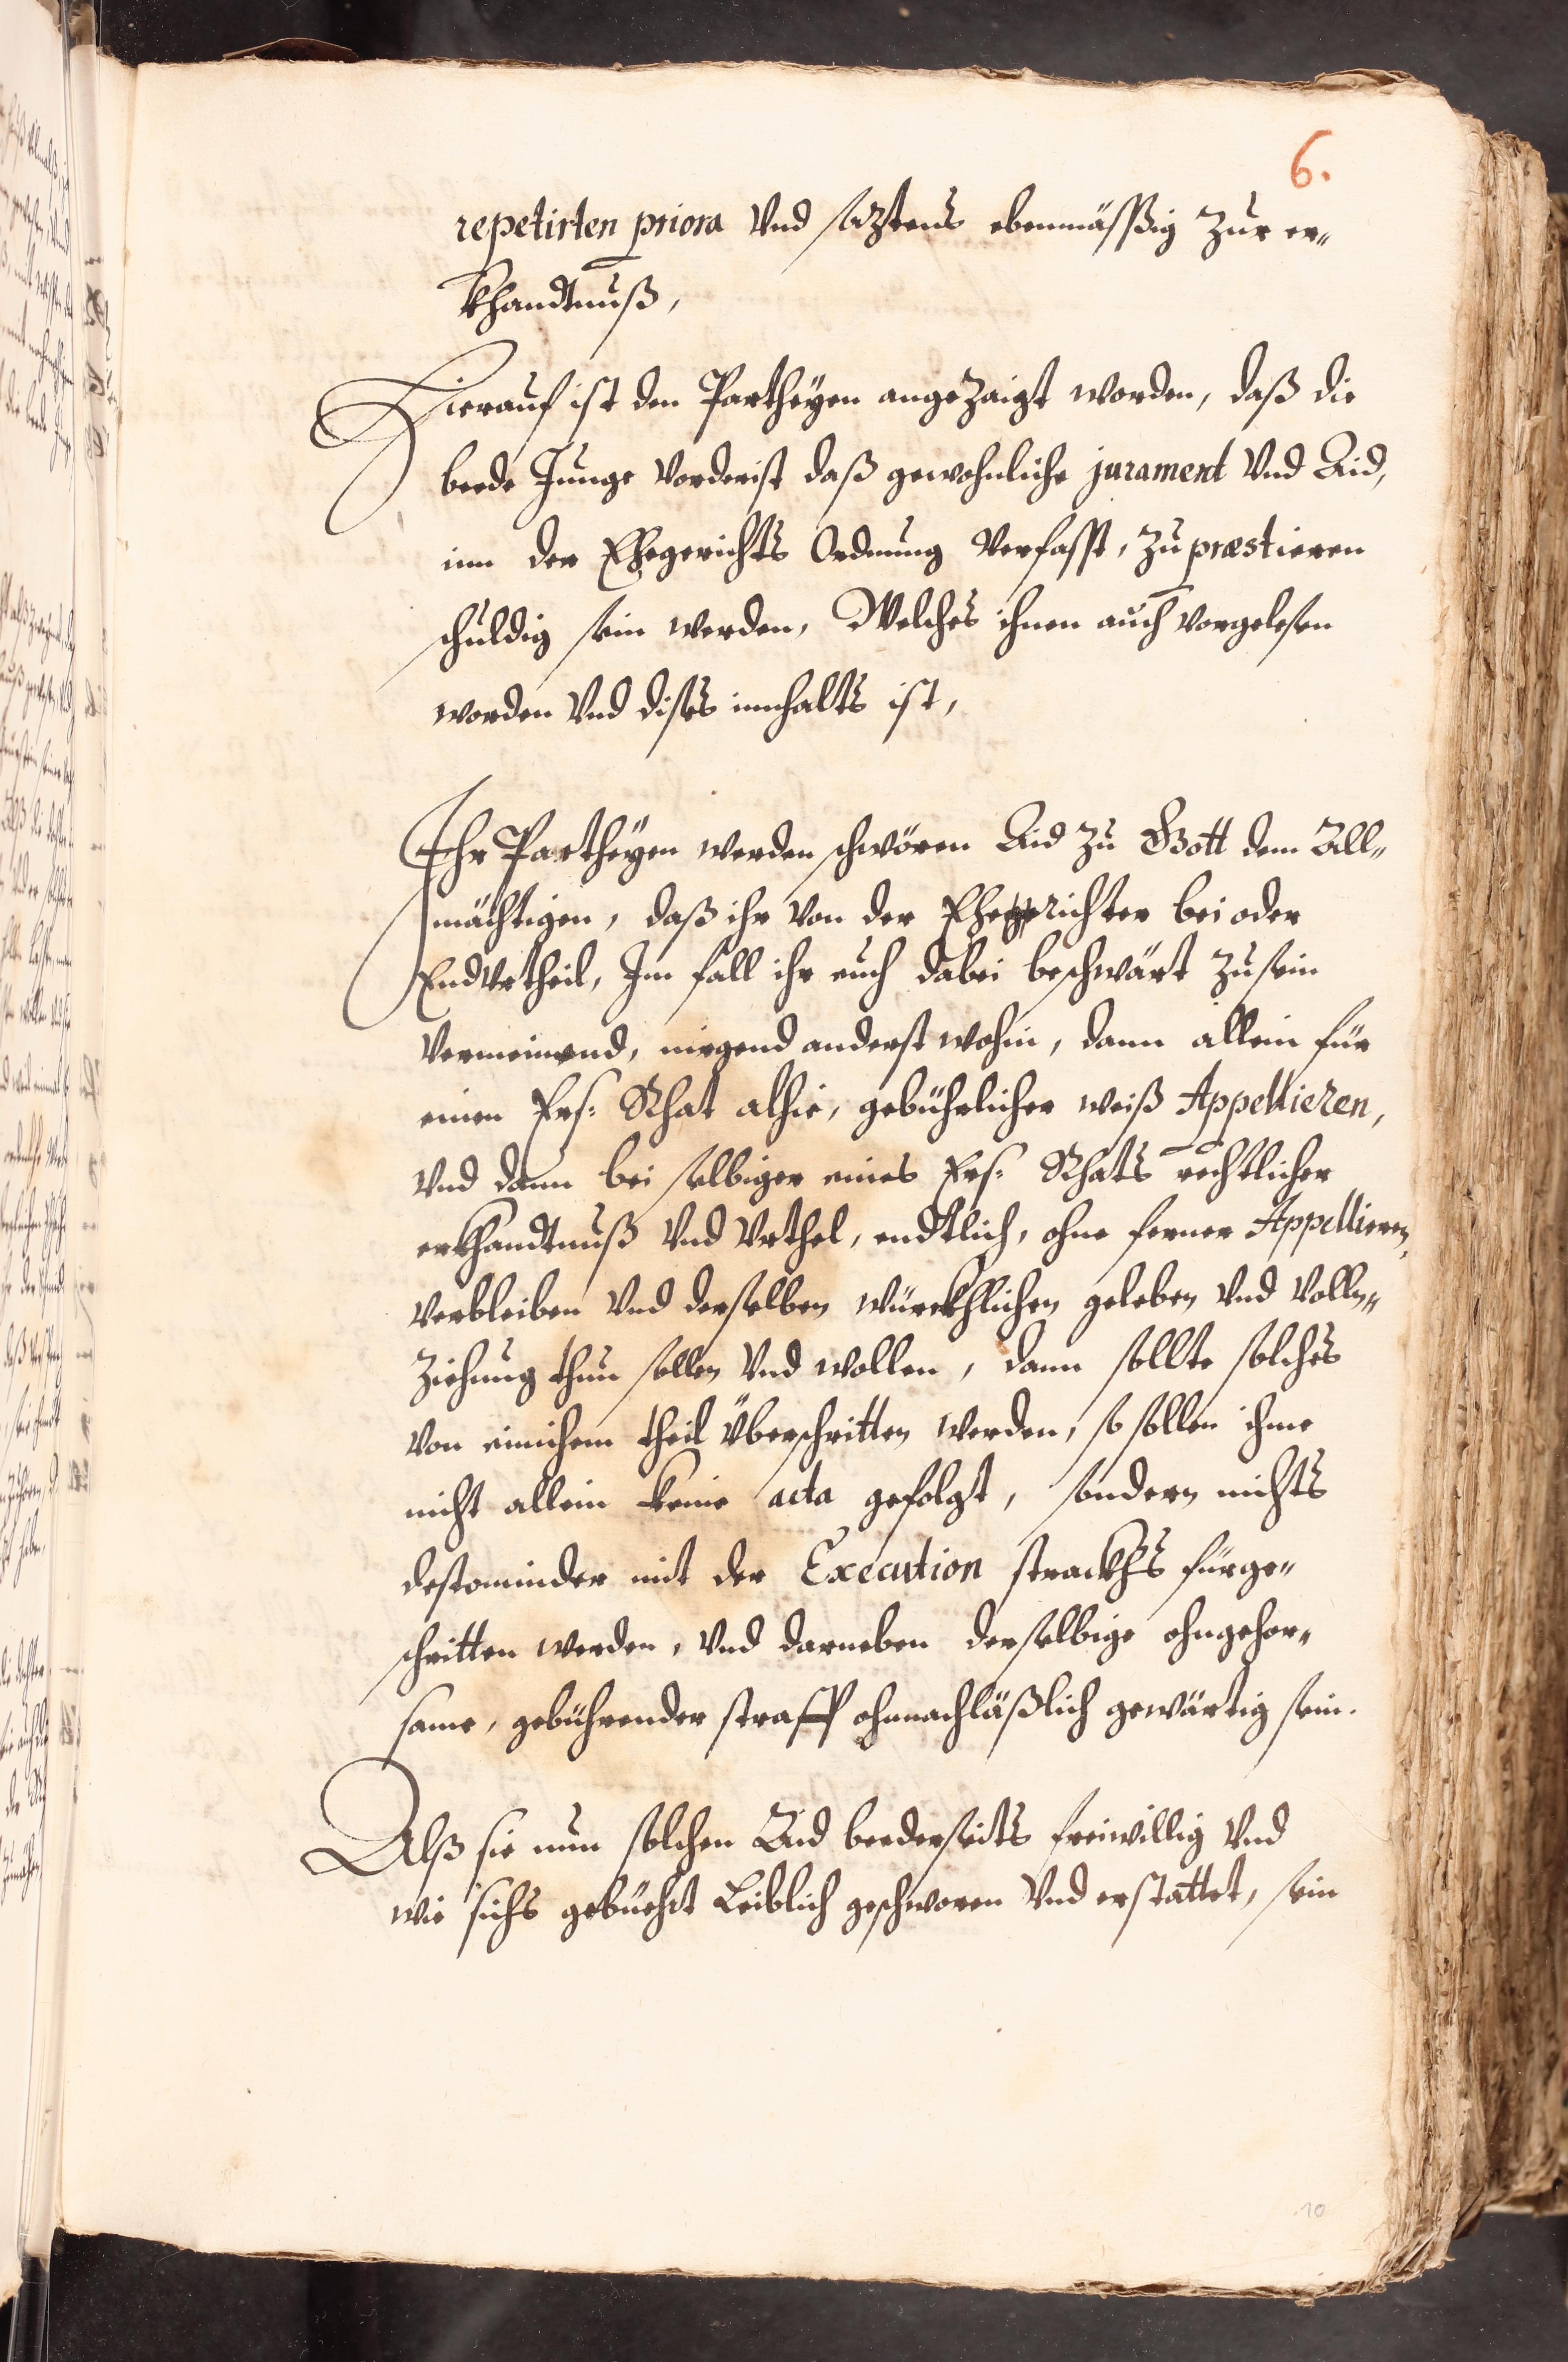 6.
repetirten priora vnd saztens ebenmässig zur er„
khandtnuß,
Hierauf ist den Partheyen angezaigt worden, daß die
beede Junge vorderist daß gewohnliche jurament vnd Aid,
inn der Ehegerichts Ordnung verfasst, zu præstieren
schuldig sein werden, Welches ihnen auch vorgelesen
worden vnd dises innhalts ist,
Ihr Partheyen werden schwören Aid zu Gott dem All„
mächtigen, daß ihr von der Eherichter bei oder
Endvrtheil, Im fall ihr euch dabei beschwärt zu sein
vermeinend, nirgend anderst wohin, dann allein für
einen Ers: Rhat alhie, gebührlicher weiß Appellieren,
vnd dann bei selbiger eines Ers: Rhats rechtlicher
erkhandtnuß vnd vrthel, endtlich, ohne ferner Appellieren,
verbleiben vnd derselben würckhlichen geleben vnd Volln„
ziehung thun sollen vnd wollen, dann sollte solches
von einichem theil überschritten werden, so sollen ihme
nicht allein keine acta gefolgt, sondern nichts
destominder mit der Execution strackhs fürge„
schritten werden, vnd darneben derselbige ohngehor„
same, gebührender straff ohnnachläßlich gewärtig sein.
Alß sie nun solchen Aid beederseits freiwillig vnd
wie sichs gebüehrt Leiblich geschworen vnd erstattet, sein
10